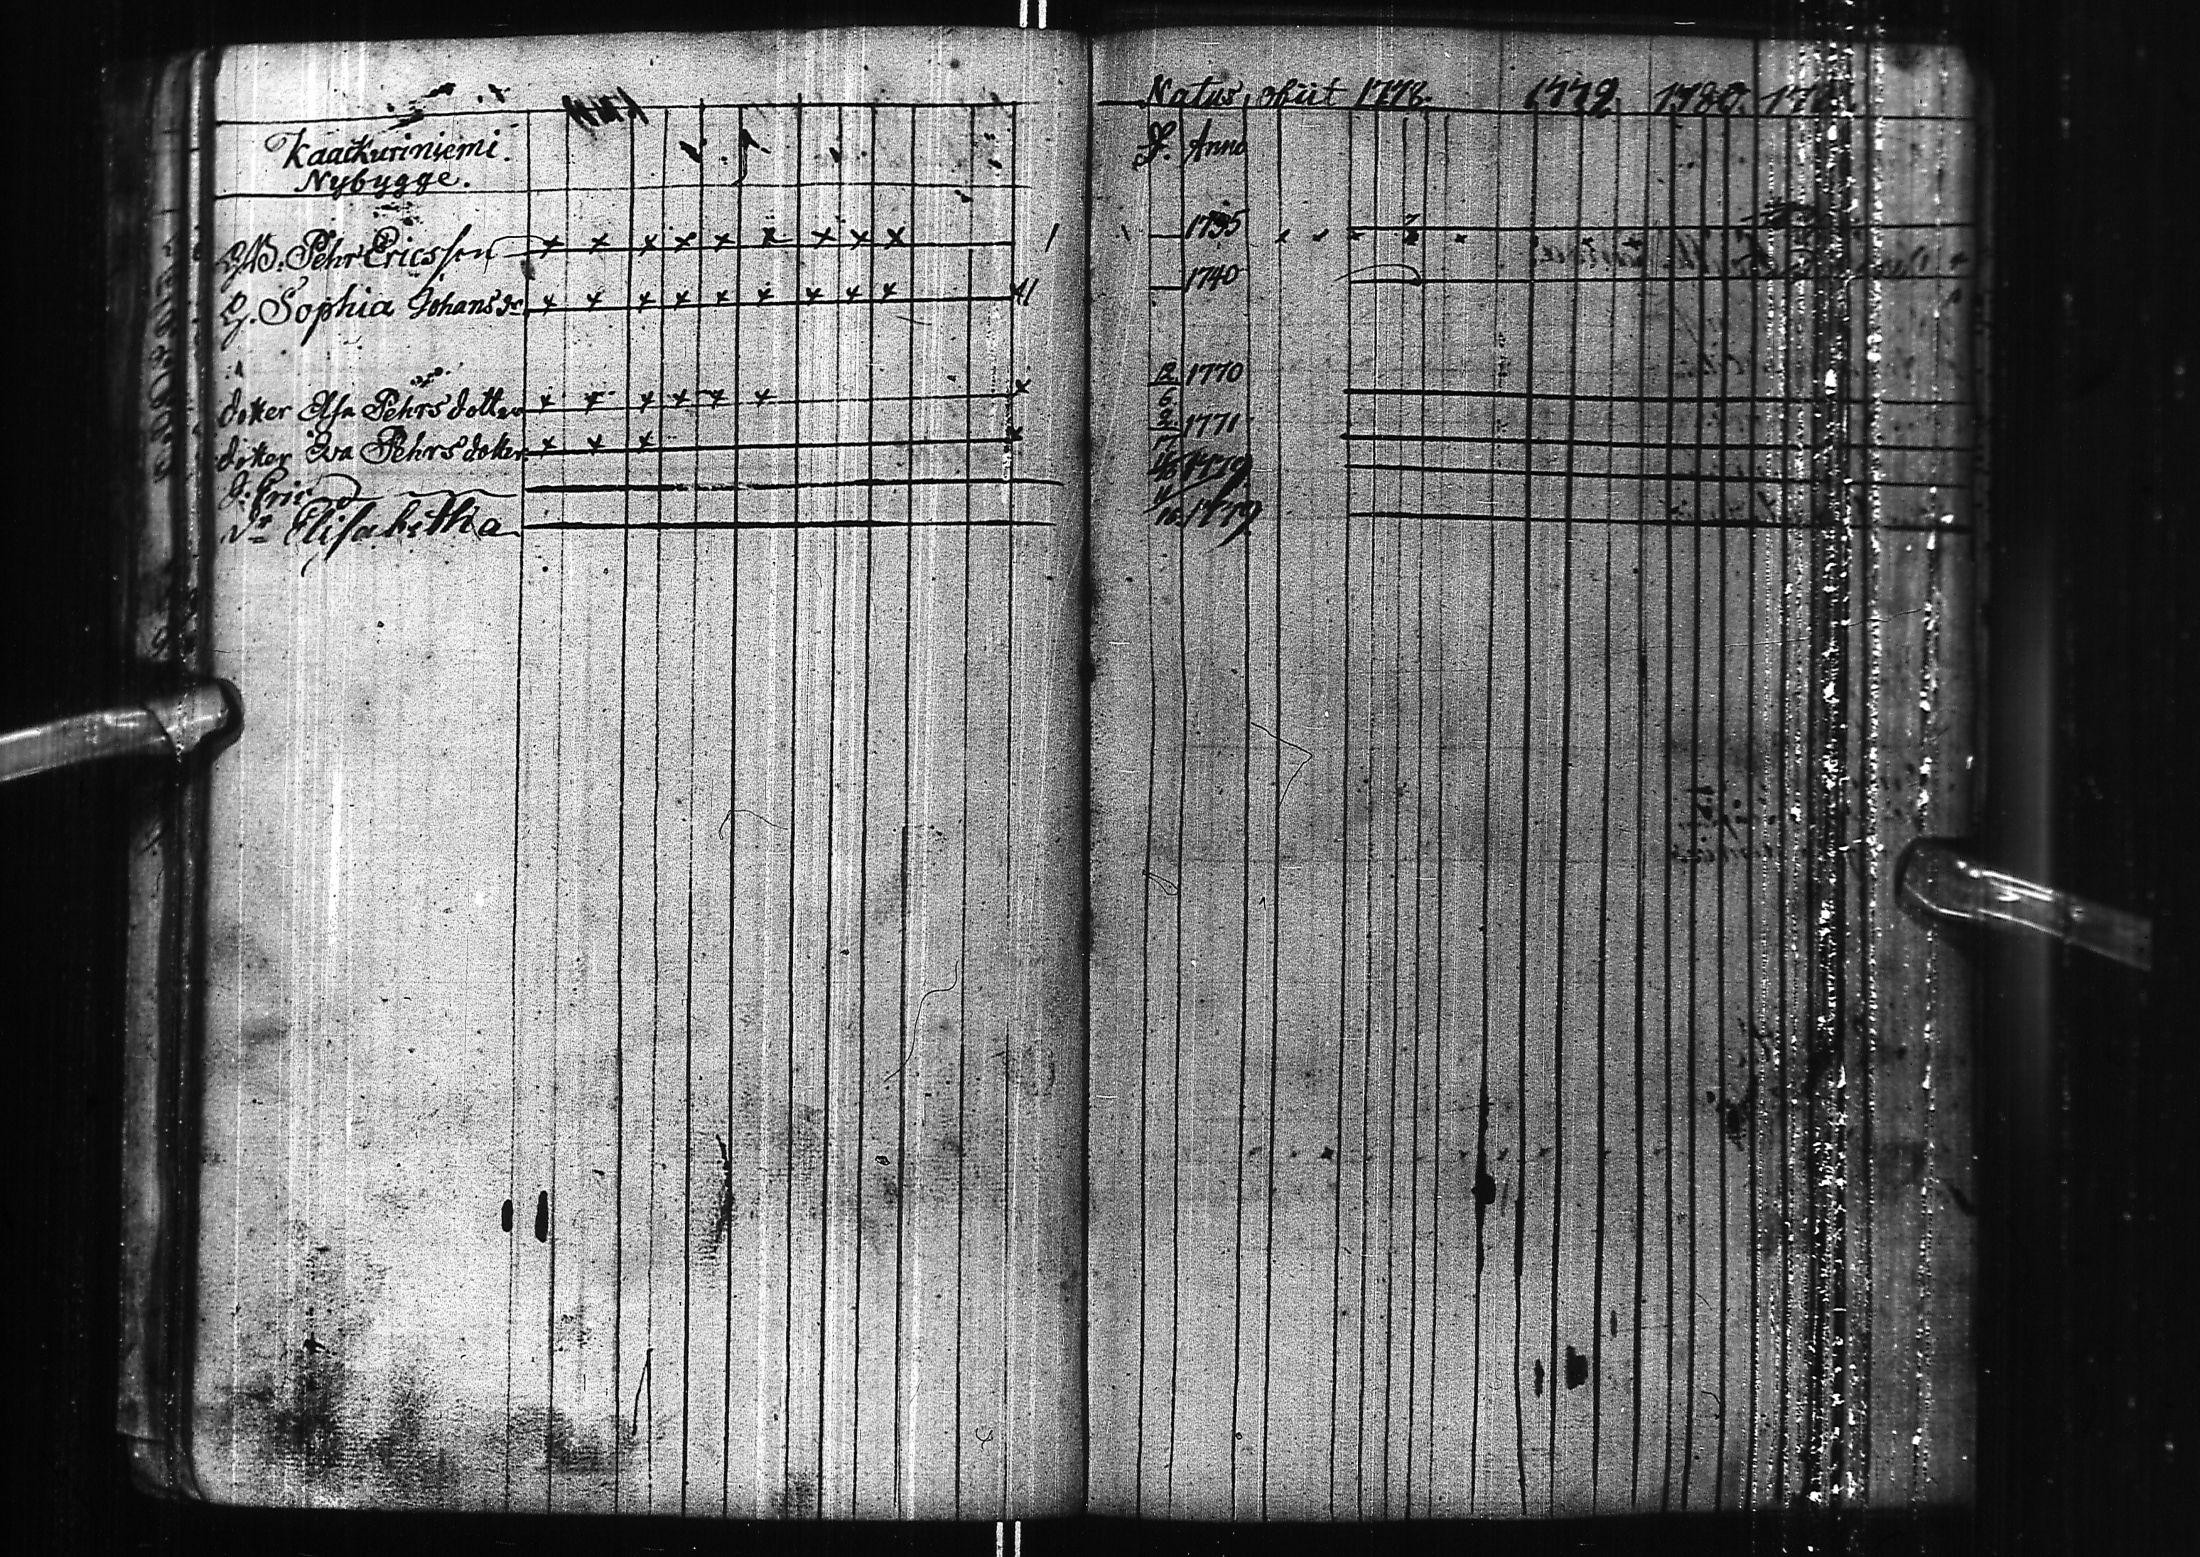 Kaackuriniemi.
Nybygge.
Natus obiit 1778. 1779. 1780.
Anno
Pehr Ericsson 1 1735
G. Sophia Johans dr 1740
dotter Elsa Pehrs dotter 12 6 1770
dotter Eva Pehrs dotter 2 17 1771
Eric 1779
Dr Elisabetha 1779